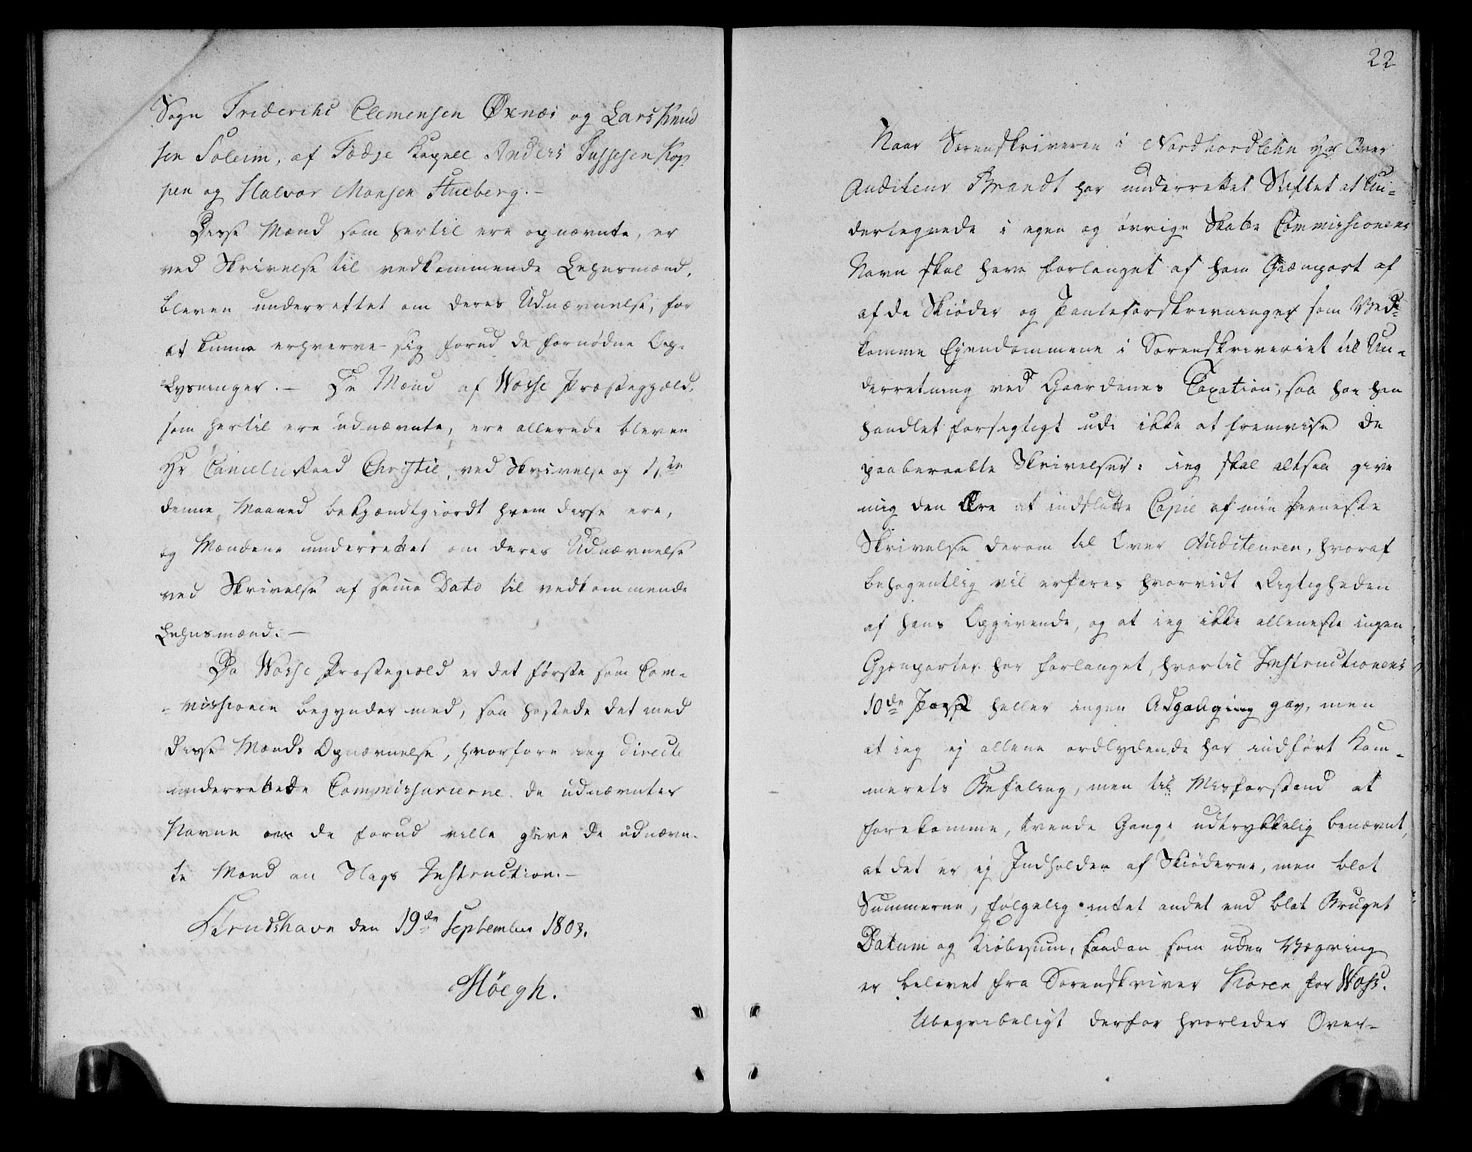 Sogn Friderichs Clemensen Øxnæs og Lars Knud
sen Soleim, af Tødse Kapell Anders Jussesen Kop
pen og Halvor Monsen Stueberg. –
Disse Mænd som hertil ere opnævnte, er
ved Skrivelse til vedkommende Lehnsmænd,
bleven underrettet om deres Udnævnelse, for
at kunne erhverve sig forud de fornødne Op-
lysninger. – De Mænd af Wosse Præstegield,
som hertil ere udnævnte, ere allerede bleven
Hr Cancelliraad Christie, ved Skrivelse af 1ste
denne Maaned bekiændtgiordt hvem disse ere,
og Mændene underrettet om deres Udnævnelse
ved Skrivelse af samme Dato til vedkommende
Lehnsmænd. –
Da Wosse Præstegield er det første som Com-
missionen begynder med, saa hastede det med
disse Mænds Opnævnelse, hvorfore ieg directe
underrettede Commissarierne de udnævntes
Navne om de forud ville give de udnævn-
te Mænd en Slags Instruction. –
den 19de September 1803.
Høegh.
22
Naar Sorenskriveren i Nordhordlehn Hr Over
Auditeur Brandt har underrettet Stiftet at Un-
dertegnede i egen og øvrige Skatte Commissionens
Navn skal have forlanget af ham Gienpart af
af de Skiøder og Panteforskrivninger som Ved-
komme Eiendommene i Sorenskriveriet til Un-
derretning ved Gaardenes Taxation, saa har han
handlet forsigtigt udi ikke at fremvise de
paaberaabte Skrivelser: ieg skal altsaa give
mig den Ære at indslutte Copie af min seeneste
Skrivelse derom til Over Auditeuren, hvoraf
behagentlig vil erfares hvorvidt Rigtigheden
af hans Opgivende, og at ieg ikke alleneste ingen
Gienparter har forlanget, hvortil Instructionens
10de Post heller ingen Adgang gav, men
at ieg ej allene ordlydende har indført Kam-
merets Befaling, men til Misforstand at
forekomme, tvende Gange udtrykkelig benævnt,
at det er ej Indholden af Skiøderne, men blot
Summerne, følgelig intet andet end blot Bruget
Datum og Kiøbesum, saadan som uden Vægring
er belevet fra Sorenskriver Koren for Woss.
Ubegribeligt derfor hvorledes Over-